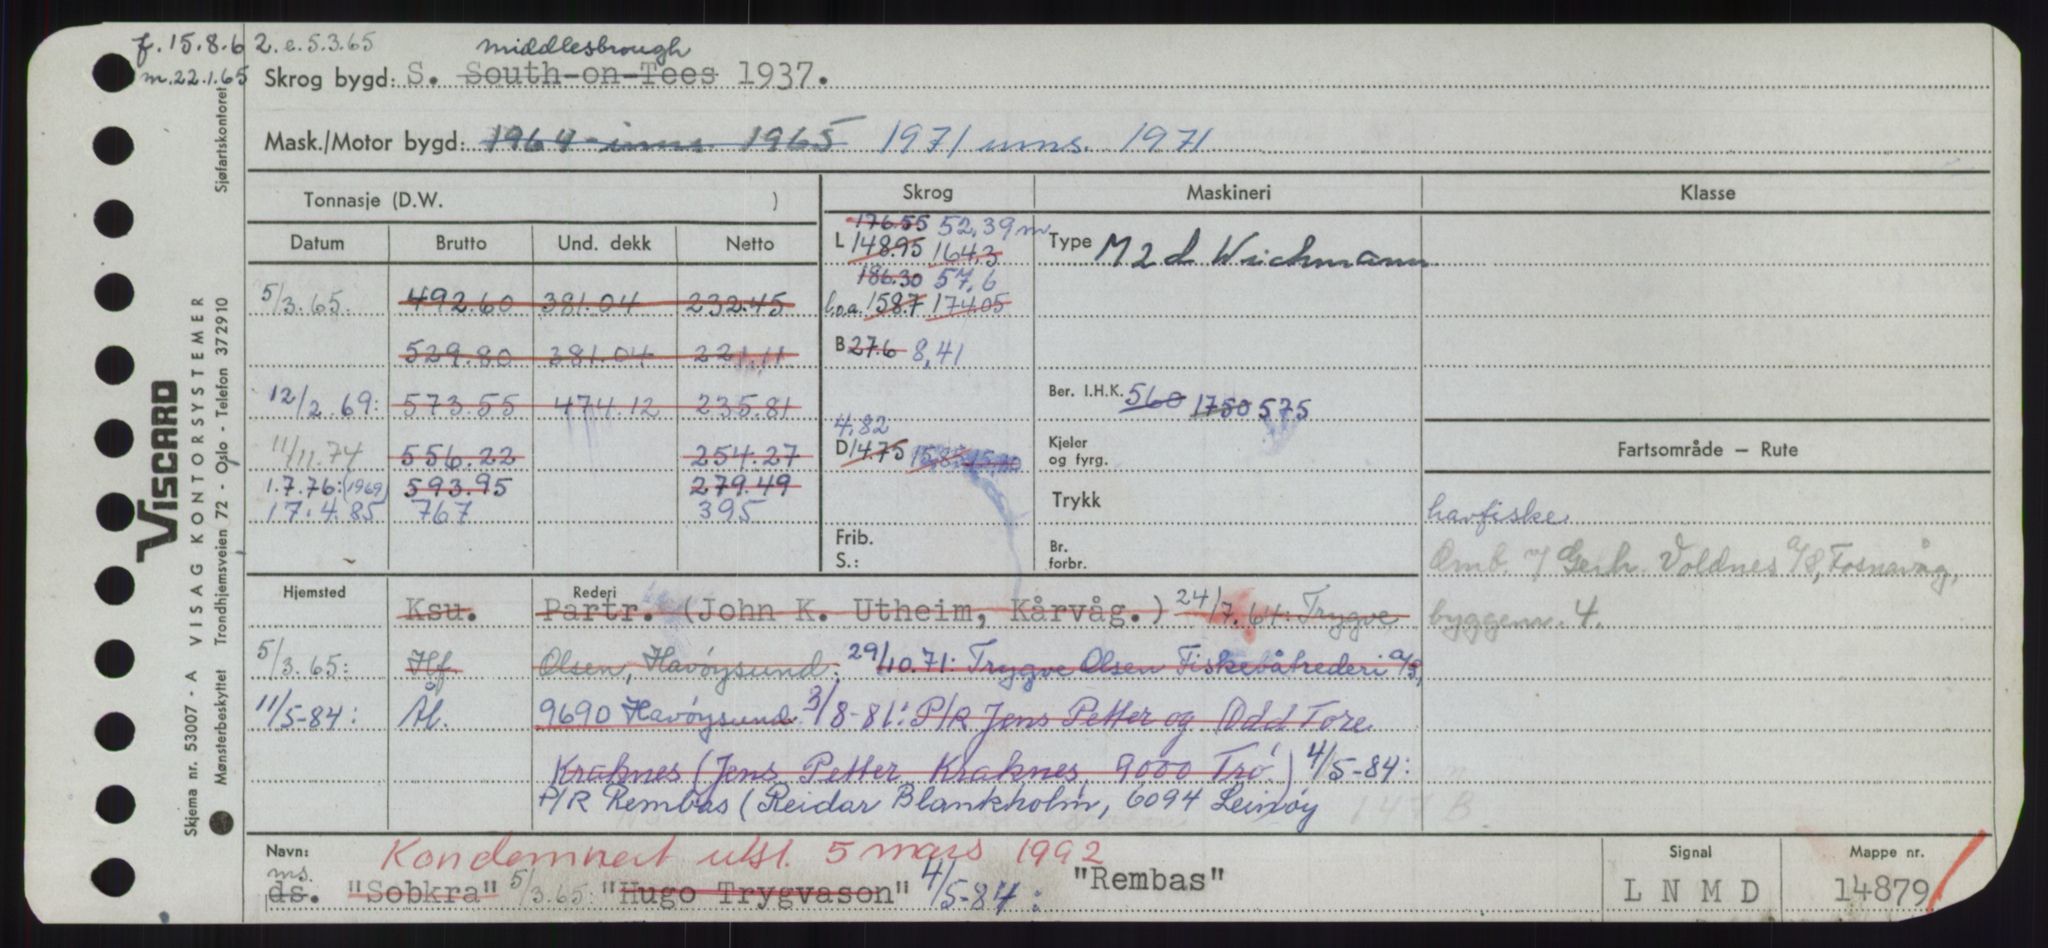 f. 15.8.62. e. 5.3.65
m. 22.1.65
middlesbrough
Skrog bygd: S. South-on-Tees 1937.
Mask./Motor bygd: 1964 inns. 1965 1971 inns. 1971
Tonnasje (D.W. )
Skrog
Maskineri
Klasse
Datum Brutto Und. dekk Netto
176.55 52,39 m
L 148.95 164,3
Type M 2 d Wichmann
186.30 57,6
l.o.a. 158.7 174.05
5/3.65. 492.60 381.04 232.45
529.80 381.04 221.11
B 27.6 8,41
12/2 69: 573.55 474.12 235.81
Ber. I.H.K. 560 1750 575
4,82
D 14.75 15,85
11/11.74 556.22 254.27
Kjeler og fyrg.
Fartsområde — Rute
1.7.76: (1969) 593.95 279.49
Trykk
17.4.85 767 395
havfiske
Frib.
S.:
Br. forbr.
Omb. v/ Gerh. Voldnes A/S, Fosnavåg,
byggenr. 4.
Hjemsted
Rederi
Ksu. Partr. (John K. Utheim, Kårvåg.) 24/7.64: Trygve
5/3.65: Hf Olsen, Havøysund. 29/10.71: Trygve Olsen Fiskebåtrederi A/S,
11/5-84: Ål. 9690 Havøysund. 3/8-81: P/R Jens Petter og Odd Tore
Kraknes (Jens Petter Kraknes, 9000 Trø.) 4/5-84:
P/R Rembas (Reidar Blankholm, 6094 Leinøy
147 B
Navn:
Kondemnert utsl. 5 mars 1992
Signal
Mappe nr.
ms.
ds. "Sobkra" 5/3.65: "Hugo Trygvason" 4/5-84: "Rembas"
L N M D
14879
VISCARD
Skjema nr. 53007 - A VISAG KONTORSYSTEMER
Mønsterbeskyttet Trondhjemsveien 72 - Oslo - Telefon 372910 Sjøfartskontoret